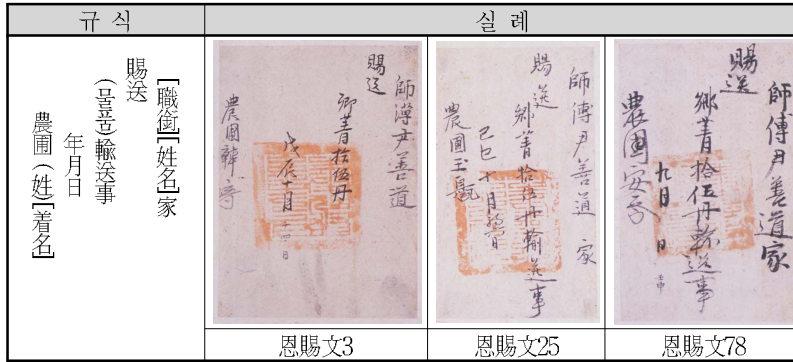 규 식
실 례
[職銜][姓名]家
賜送
(물품)輸送事
年月日
農圃 (姓)[着名]
師溥尹善道
賜送
鄕菁拾伍丹
戊辰十月十四日
農圃韓
師傅尹善道 家
賜送
鄕菁拾伍丹輸送事
己巳十月 日
農圃王
師傅尹善道家
賜送
鄕菁拾伍丹輸送事
九月 日
農圃安
恩賜文3
恩賜文25
恩賜文78